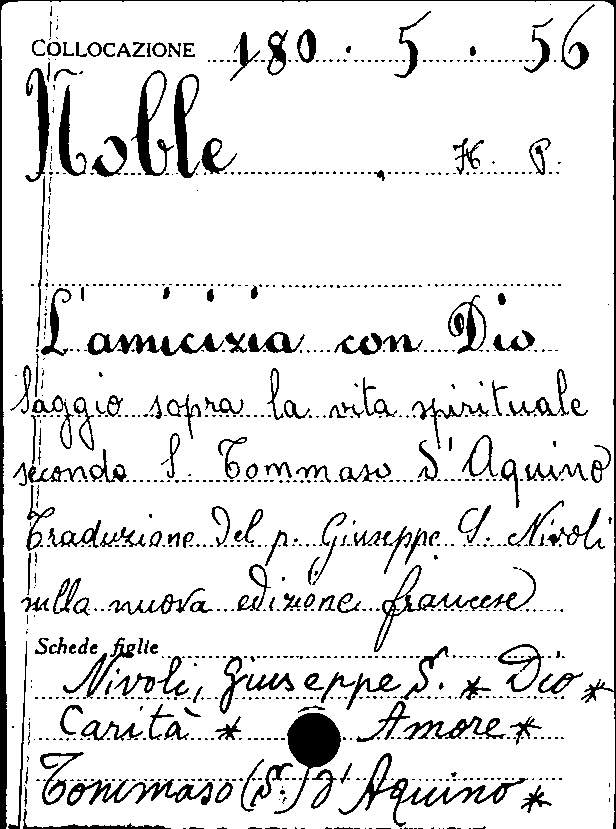 COLLOCAZIONE 180 . 5 . 56
Noble . H. P.
L'amicizia con Dio
Saggio sopra la vita spirituale
secondo S. Tommaso d'Aquino
Traduzione del p. Giuseppe S. Nivoli
sulla nuova edizione francese
Schede figlie
Nivoli, Giuseppe S. * Dio *
Carità * Amore *
Tommaso (S.) d'Aquino *